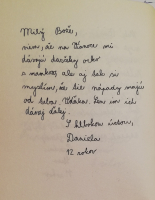 Milý Bože,
viem, že na Vianoce mi
dávajú darčeky otec
a mamka, ale aj tak si
myslím, že tie nápady majú
od teba. Vďaka. Len im ich
dávaj ďalej.
S hlbokou úctou,
Daniela
12 rokov